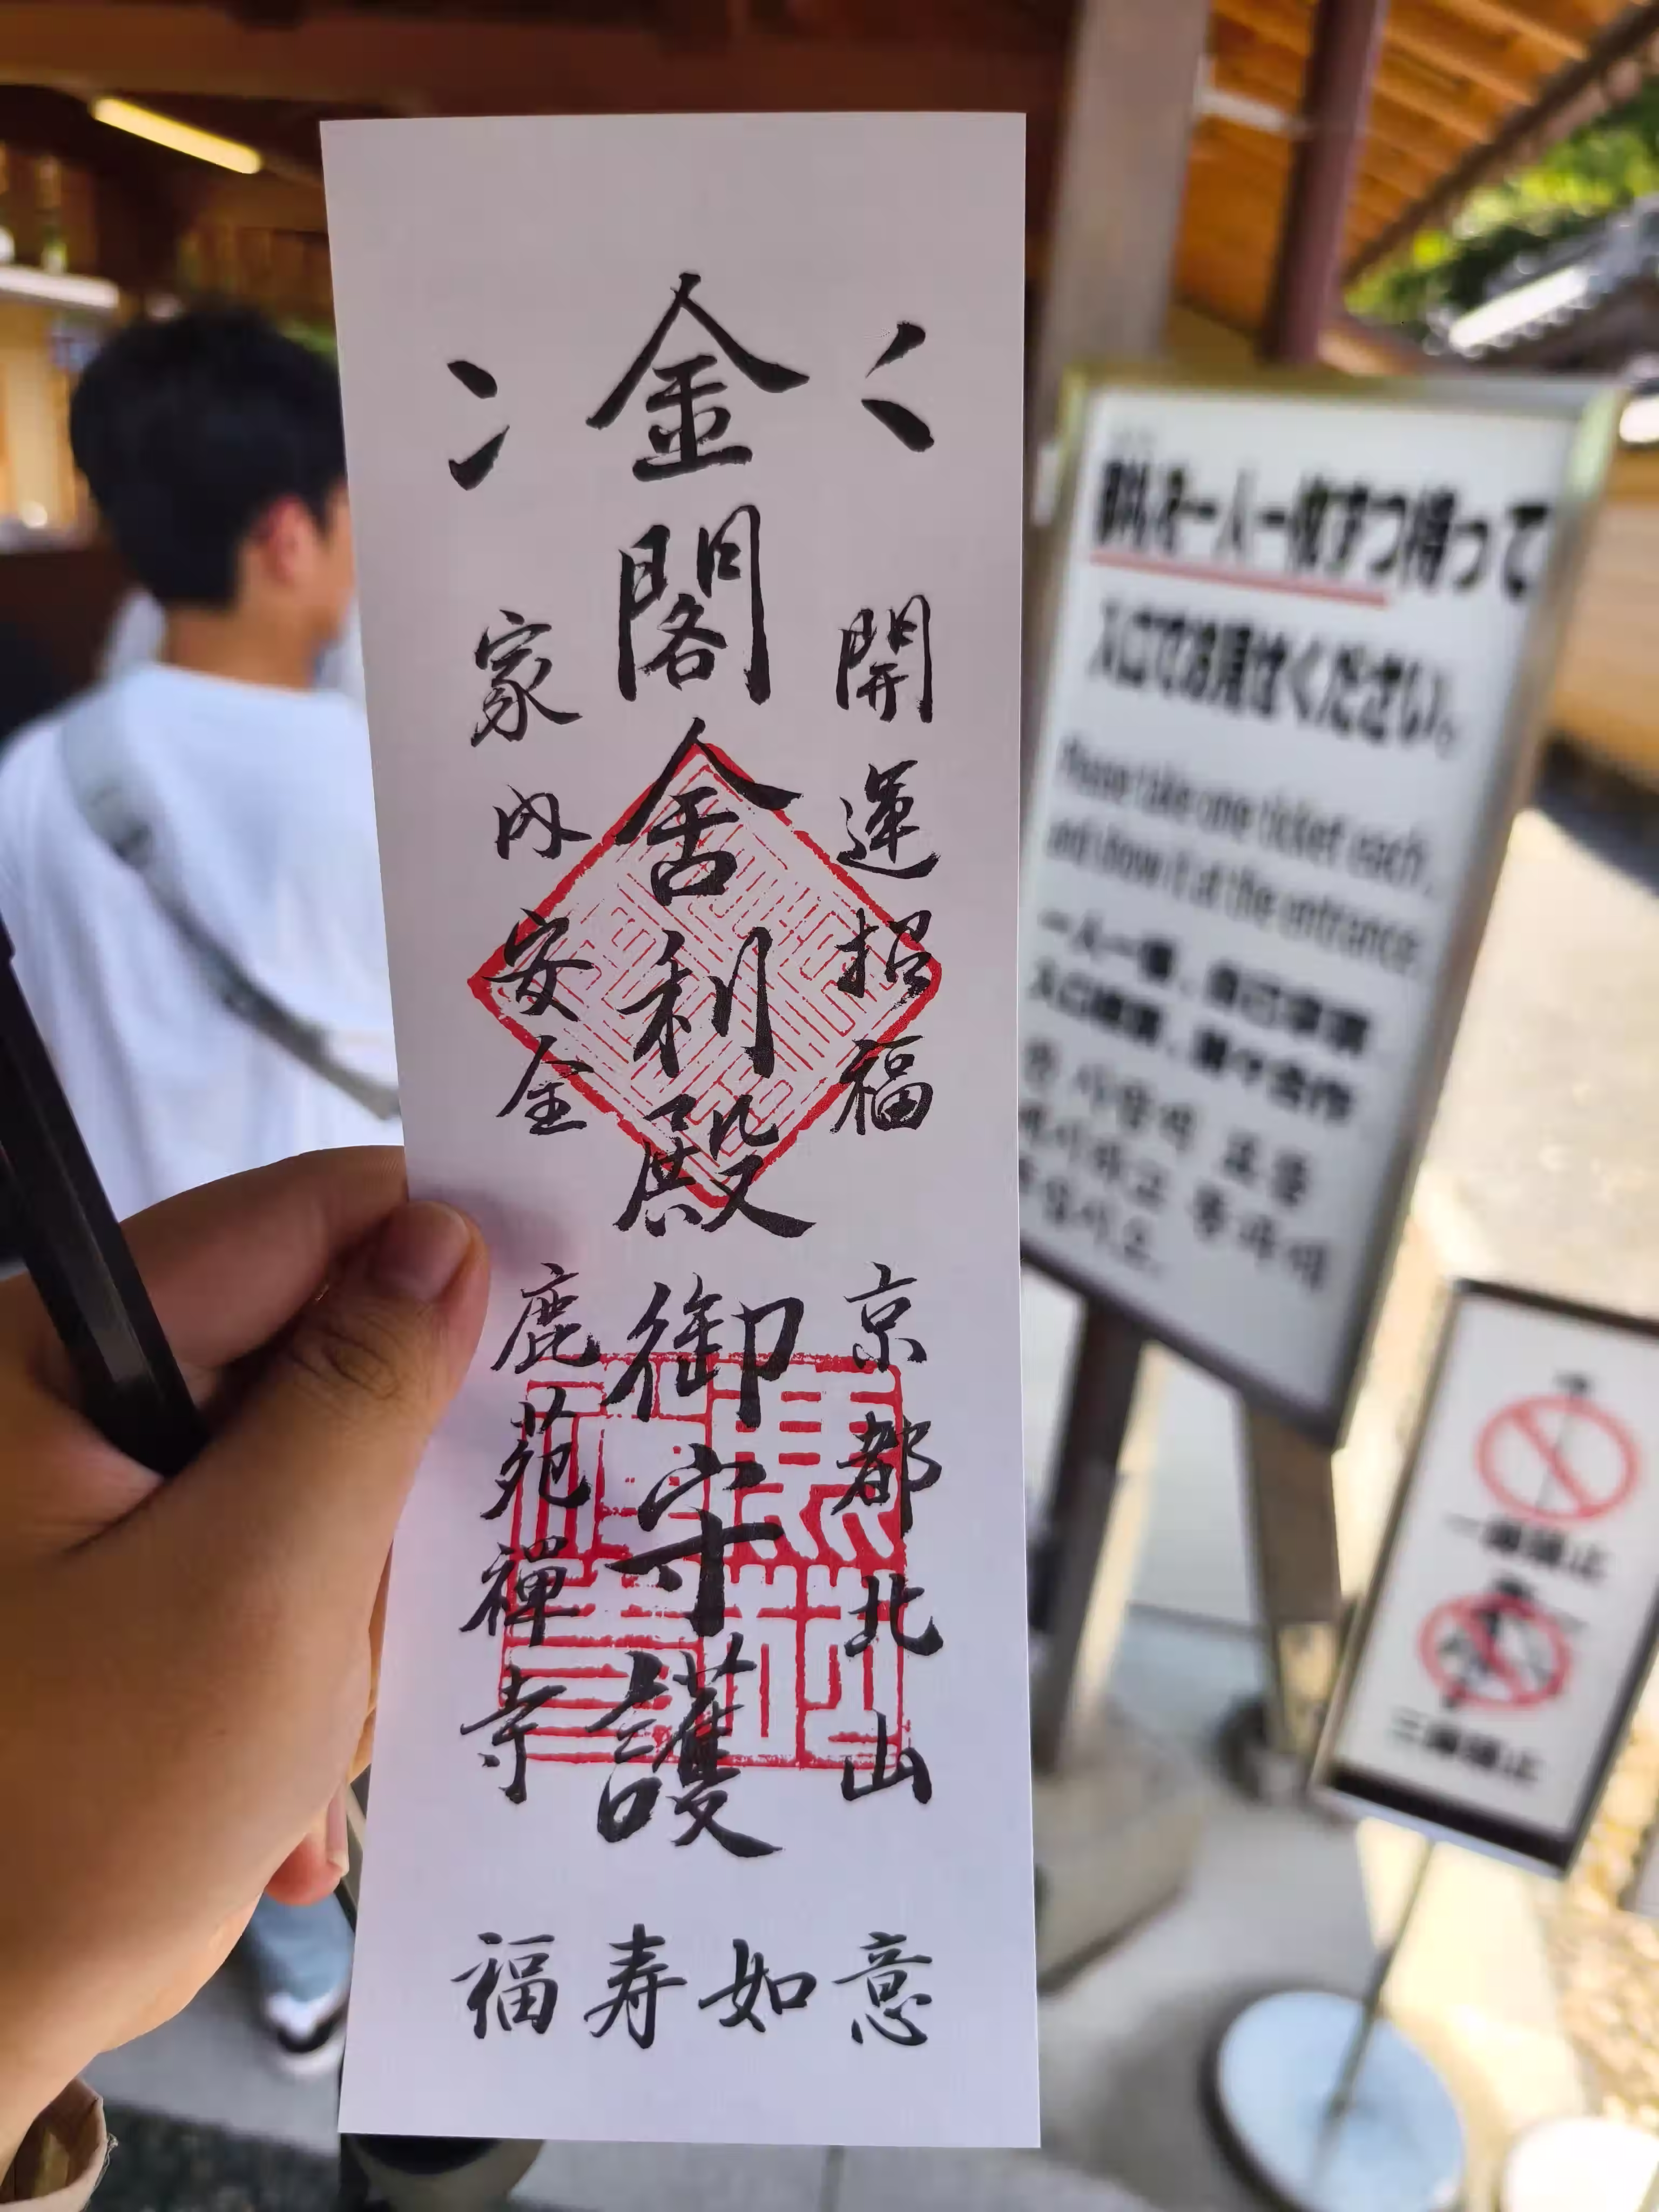 開運招福
京都北山
金閣舍利殿
御守護
家内安全
鹿苑禅寺
福寿如意
拝観券を一人一枚ずつ持って
入口でお見せください。
Please take one ticket each,
and show it at the entrance.
一脚禁止
三脚禁止